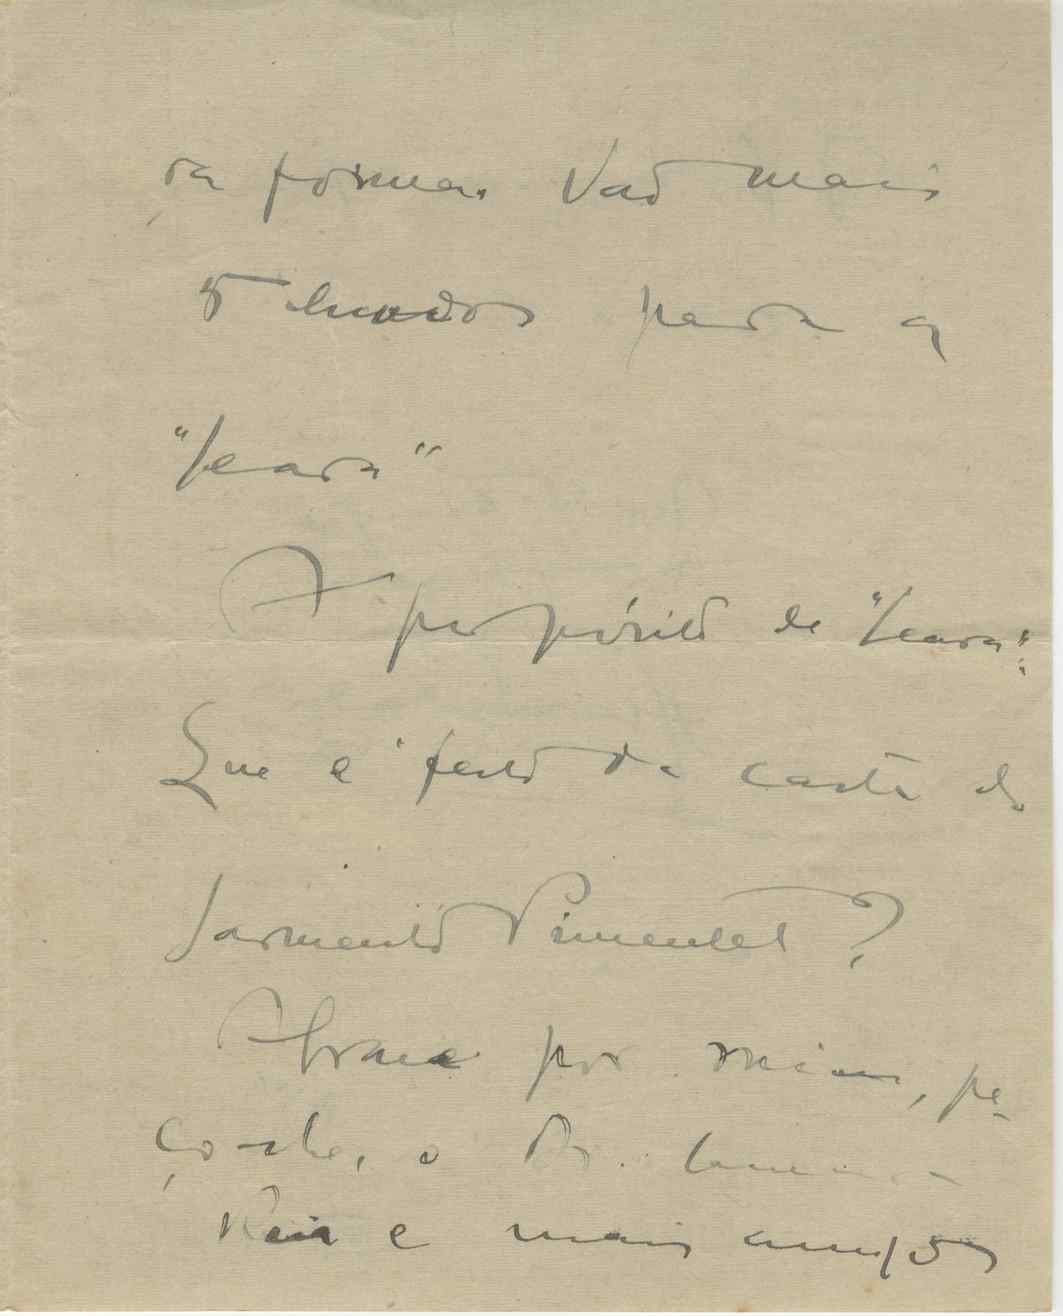 forma. Vão mais
para a
"Seara"
A propósito de "Seara":
Que é feito da carta do
Sarmento Pimentel?
Abrace por mim, pe-
ço-lhe, o Dr. Câmara
Reis e mais amigos